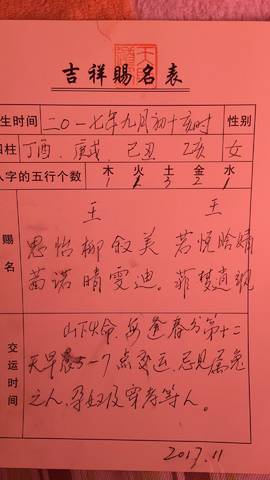 吉祥賜名表
生时间 二〇一七年九月初十亥时 性别
四柱 丁酉 庚戌 己丑 乙亥 女
八字的五行个数 木1 火1 土3 金2 水1
王 王
赐名 思怡柳叙美 若悦晗婧
茜诺晴雯迪。菲梦逍
交运时间 山下火命,每逢春分第十二
天早 5-7点交运,忌见属兔
之人,孕妇及穿孝等人。
2017.11